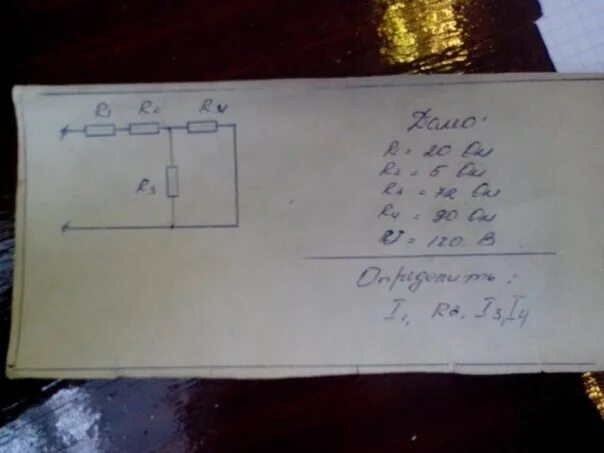 R1 R2 R4
R3
Дано:
R1 = 20 Ом
R2 = 5 Ом
R3 = 72 Ом
R4 = 90 Ом
U = 120 В
Определить:
I1, Rэ, I3, I4